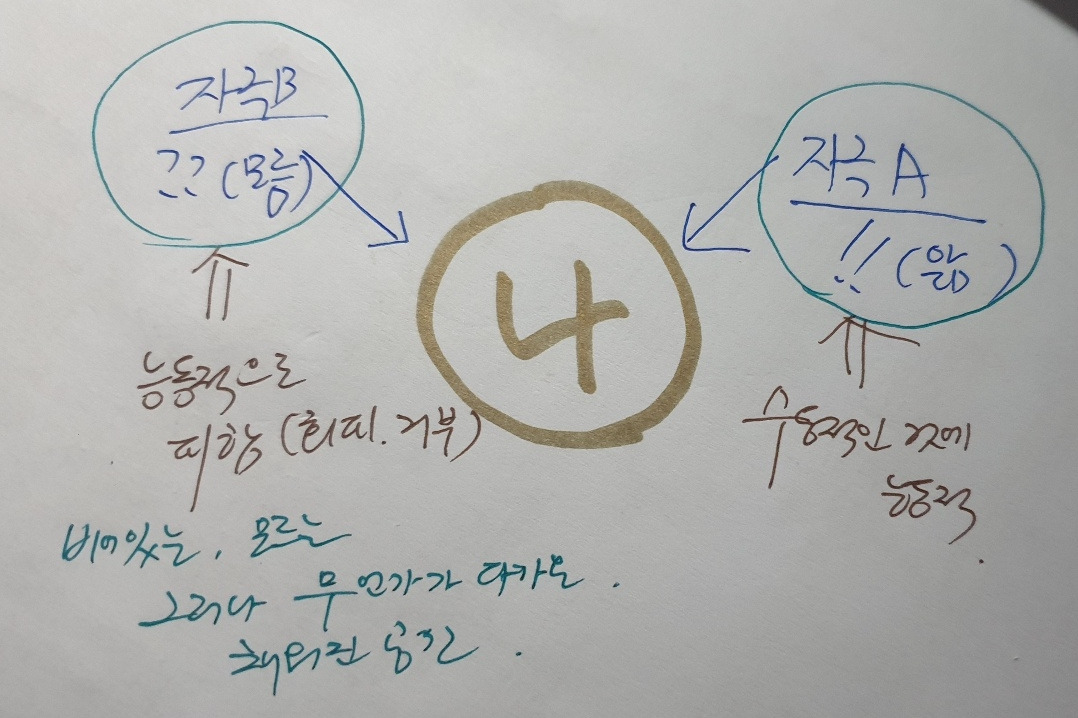 자극B
?? (모름)
자극 A
!! (앎)
나
능동적으로
피함 (회피. 거부)
수동적인 것에
능동적
비어있는, 모르는
그러나 무언가가 다가온.
채워진 공간.